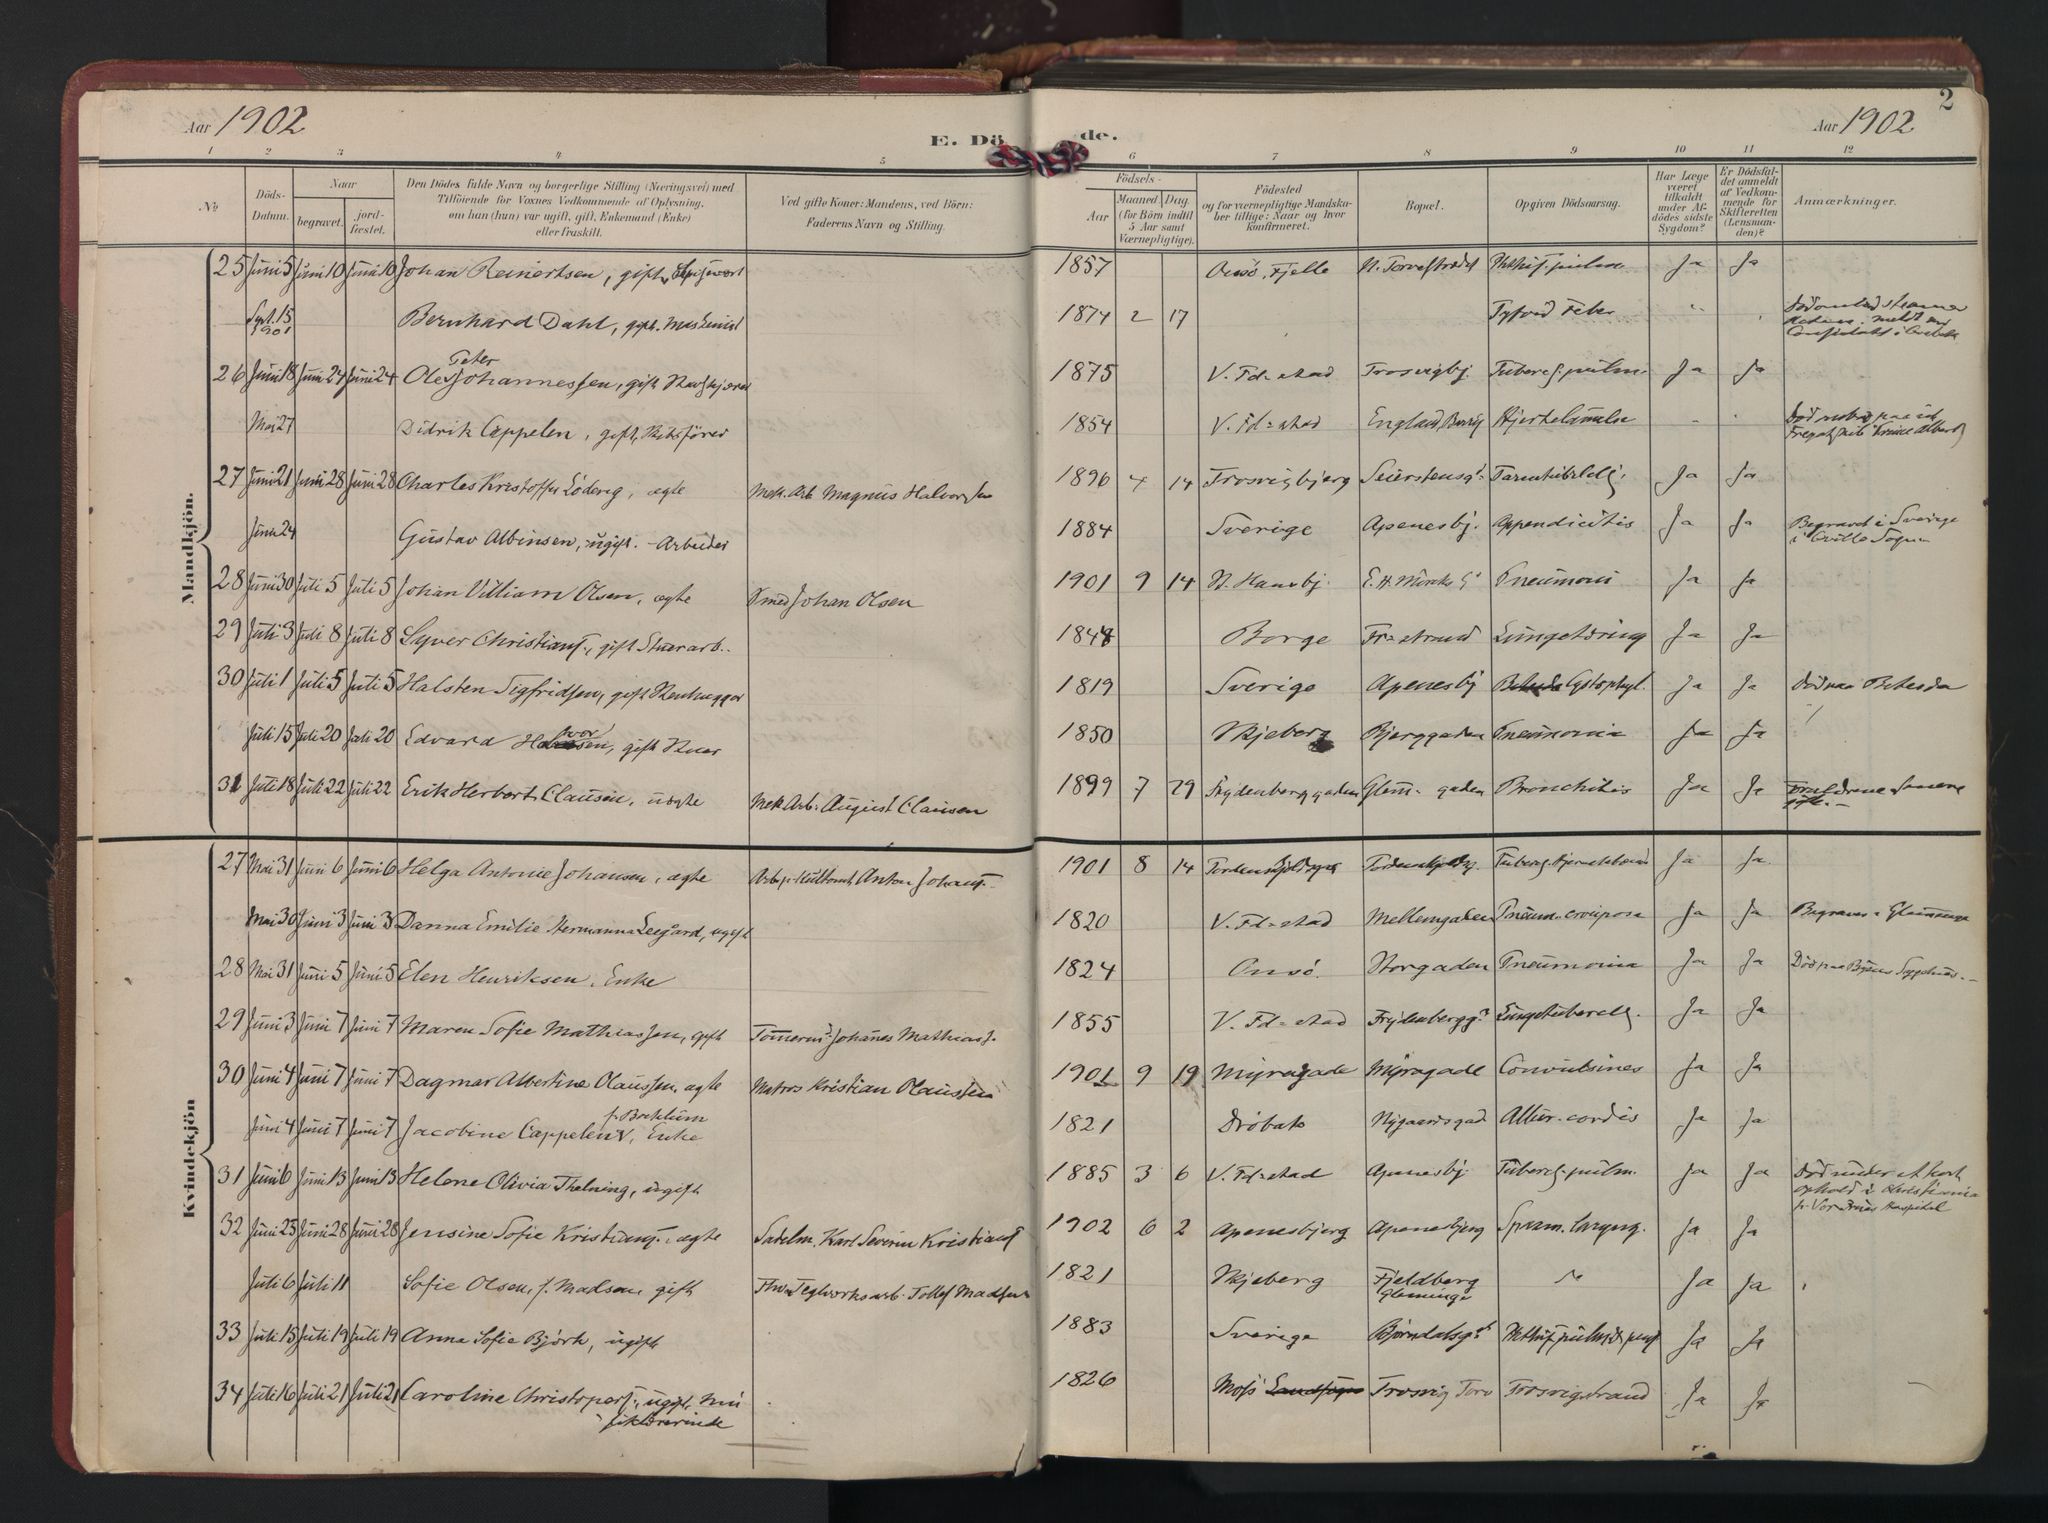 Aar 1902
E. Dö de.
Aar 1902
2
1 2 3 4 5 6 7 8 9 10 11 12
№
Döds-Datum.
Naar
begravet.
jord-fæstet.
Den Dödes fulde Navn og borgerlige Stilling (Næringsvei) med
Tilföiende for Voxnes Vedkommende af Oplysning,
om han (hun) var ugift, gift, Enkemand (Enke)
eller fraskilt.
Ved gifte Koner: Mandens, ved Börn:
Faderens Navn og Stilling.
Födsels-
Aar
Maaned. Dag.
(for Börn indtil
5 Aar samt
Værnepligtige).
Födested
og for værnepligtige Mandska-
ber tillige: Naar og hvor
konfirmeret.
Bopæl.
Opgiven Dödsaarsag.
Har Læge
været
tilkaldt
under Af-
dödes sidste
Sygdom?
Er Dödsfal-
det anmeldt
af Vedkom-
mende for
Skifteretten
(Lensman-
den)?
Anmærkninger.
Mandkjön.
25 Juni 5 Juni 10 Juni 10 Johan Reinertsen, gift 1857 Onsö, Fjelle N. Torvestrædet Phthis. pulm. Ja Ja
Sept. 15 1901 Bernhard Dahl, gift. Maskinist 1874 2 17 Tyfoid Feber
26 Juni 18 Juni 24 Juni 24 Ole Peter Johannessen, gift 1875 V. Fd=stad Trosvigbj. Tubercl. pulm. Ja Ja
Mai 27 Didrik Cappelen, gift, Skibsfører 1854 V. Fd=stad England Hjertelammelse
27 Juni 21 Juni 28 Juni 28 Charles Kristoffer Löderg, ægte Mek. Arb. Magnus Halvorsen 1896 4 14 Trosvigbjerg Seierstensg. Ja Ja
Juni 24 Gustav Albinsen, ugift. - Arbeider 1884 Sverige Apenesbj. Appendicitis Ja Ja Begravet i Sverige
i Qville Sogn
28 Juni 30 Juli 5 Juli 5 Johan Villiam Olsen, ægte Smed Johan Olsen 1901 9 14 Pneumoni Ja Ja
29 Juli 3 Juli 8 Juli 8 Syver Christians., gift Stuerarb. 1848 Borge Fr=strand Lungetæring Ja Ja
30 Juli 1 Juli 5 Juli 5 Halsten Sigfridsen, gift Stenhugger 1819 Sverige Apenesbj Ja Ja Död paa Betesda
Juli 15 Juli 20 Juli 20 Edvard Halvorsen, gift 1850 Skjeberg Bjerggaden Pneumonia Ja Ja
31 Juli 18 Juli 22 Juli 22 Erik Herbert Clausen, uægte Mek. Arb. August Clausen 1899 7 29 Frydenberggaden Glem- gaden Bronchitis Ja Ja Forældrene senere
gift.-
Kvindekjön
27 Mai 31 Juni 6 Juni 6 Helga Antonie Johansen, ægte Anton Johans. 1901 8 14 Tordenskjoldsg. Ja Ja.
Mai 30 Juni 3 Juni 3 Danna Emilie Hermanna Leegård, ugift 1820 V. Fd=stad Mellemgaden Pneum. crouposa Ja Ja
28 Mai 31 Juni 5 Juni 5 Elen Henriksen, Enke 1824 Onsö. Storgaden Pneumonia Ja Ja Död paa Byens Sygehus.-
29 Juni 3 Juni 7 Juni 7 Maren Sofie Mathiassen, gift Tömerm. Johanes Mathiass. 1855 V. Fd=stad Frydenbergg. Lungetubercl. Ja Ja
30 Juni 4 Juni 7 Juni 7 Dagmar Albertine Olaussen, ægte Matros Kristian Olaussen 1901 9 19 Myragade Myragade Convulsines Ja Ja
Juni 4 Juni 7 Juni 7 Jacobine Cappelen, Enke 1821 Dröbak Nygaardsgad Ja Ja
31 Juni 6 Juni 13 Juni 13 Helene Olivia Thelning, ugift 1885 3 6 V. Fd=stad Apenesbj Tubercl. pulm. Ja Ja Död under et kort
ophold i Kristiania
p. Vor Frues Hospital
32 Juni 25 Juni 28 Juni 28 Jensine Sofie Kristians., ægte Sadelm. Karl Severin Kristians 1902 6 2 Apenesbjerg Apenesbjerg Spasm. laryng. Ja Ja
Juli 6 Juli 11 Sofie Olsen, f. Madsen, gift Teglværksarb. Tollef Madsen 1821 Skjeberg Fjeldberg
Glemminge Ja Ja
33 Juli 15 Juli 19 Juli 19 Anna Sofie Björk, ugift 1883 Sverige Björndalsg. Ja Ja
34 Juli 16 Juli 21 Juli 21 Caroline Christophers., ugift, Mu
siklærerinde 1826 Moss Trosvig Torv Trosvigstrand Ja Ja